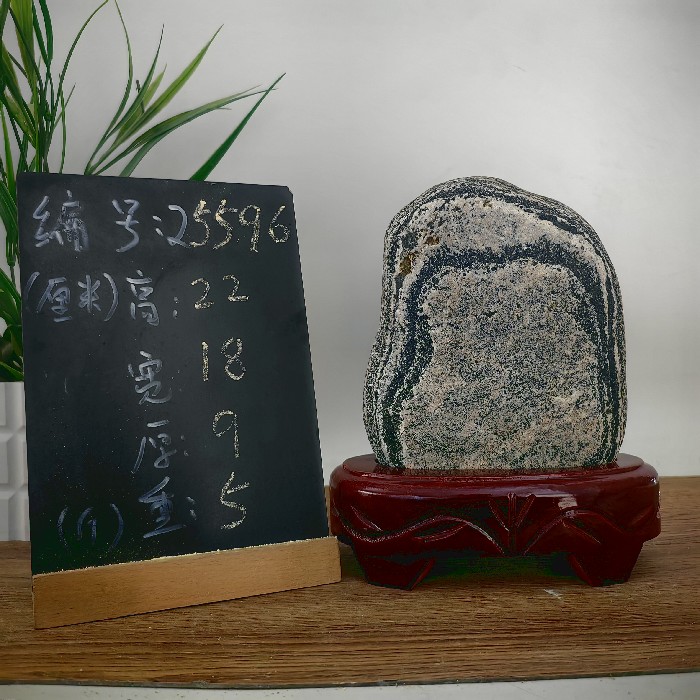 编号:25596
(厘米)高:22
宽 18
厚:9
(斤)重:5